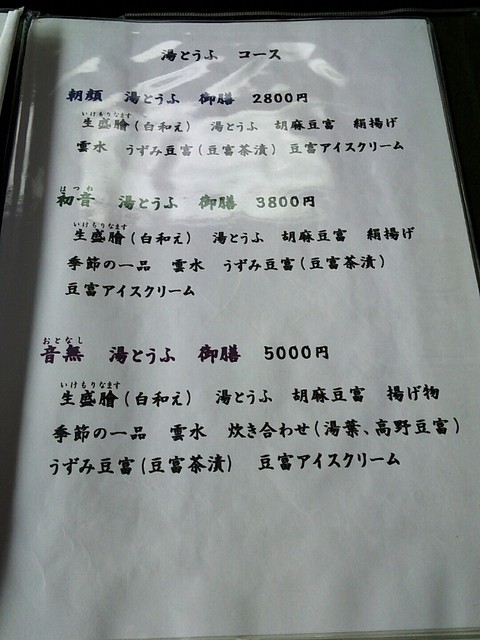 湯とうふ コース
朝顔 湯とうふ 御膳 2800円
いけもりなます
生盛膾(白和え) 湯とうふ 胡麻豆富 絹揚げ
雲水 うずみ豆富(豆富茶漬) 豆富アイスクリーム
はつね
初音 湯とうふ 御膳 3800円
いけもりなます
生盛膾(白和え) 湯とうふ 胡麻豆富 絹揚げ
季節の一品 雲水 うずみ豆富(豆富茶漬)
豆富アイスクリーム
おとなし
音無 湯とうふ 御膳 5000円
いけもりなます
生盛膾(白和え) 湯とうふ 胡麻豆富 揚げ物
季節の一品 雲水 炊き合わせ(湯葉、高野豆富)
うずみ豆富(豆富茶漬) 豆富アイスクリーム